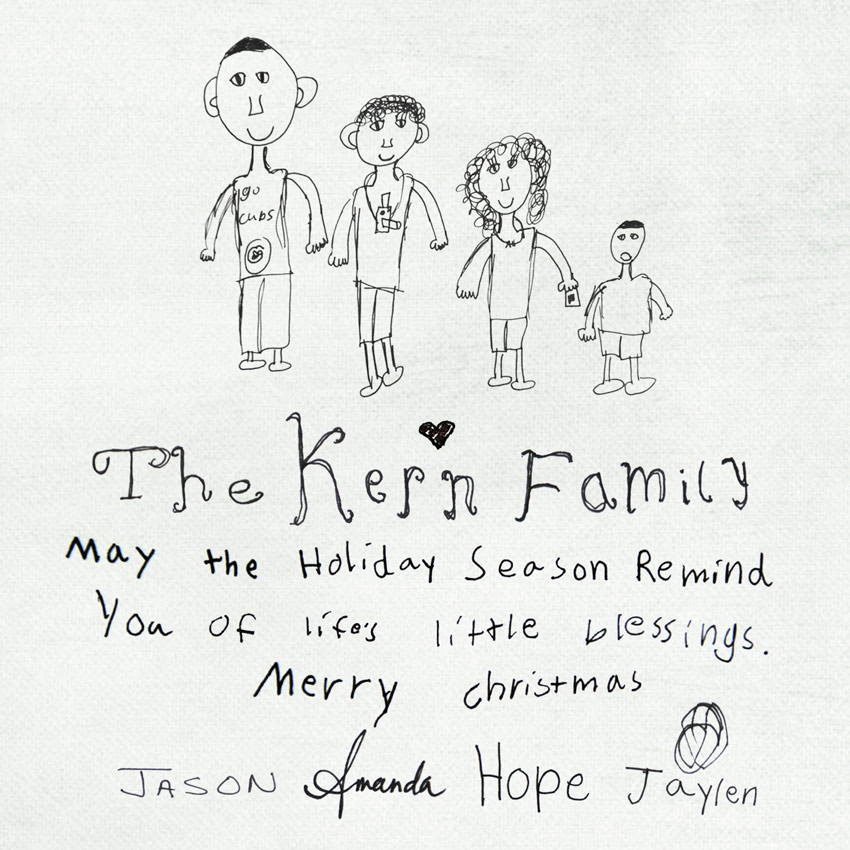 go
cubs
The Kern Family
May the Holiday Season Remind
You of life's little blessings.
Merry christmas
JASON Amanda Hope Jaylen